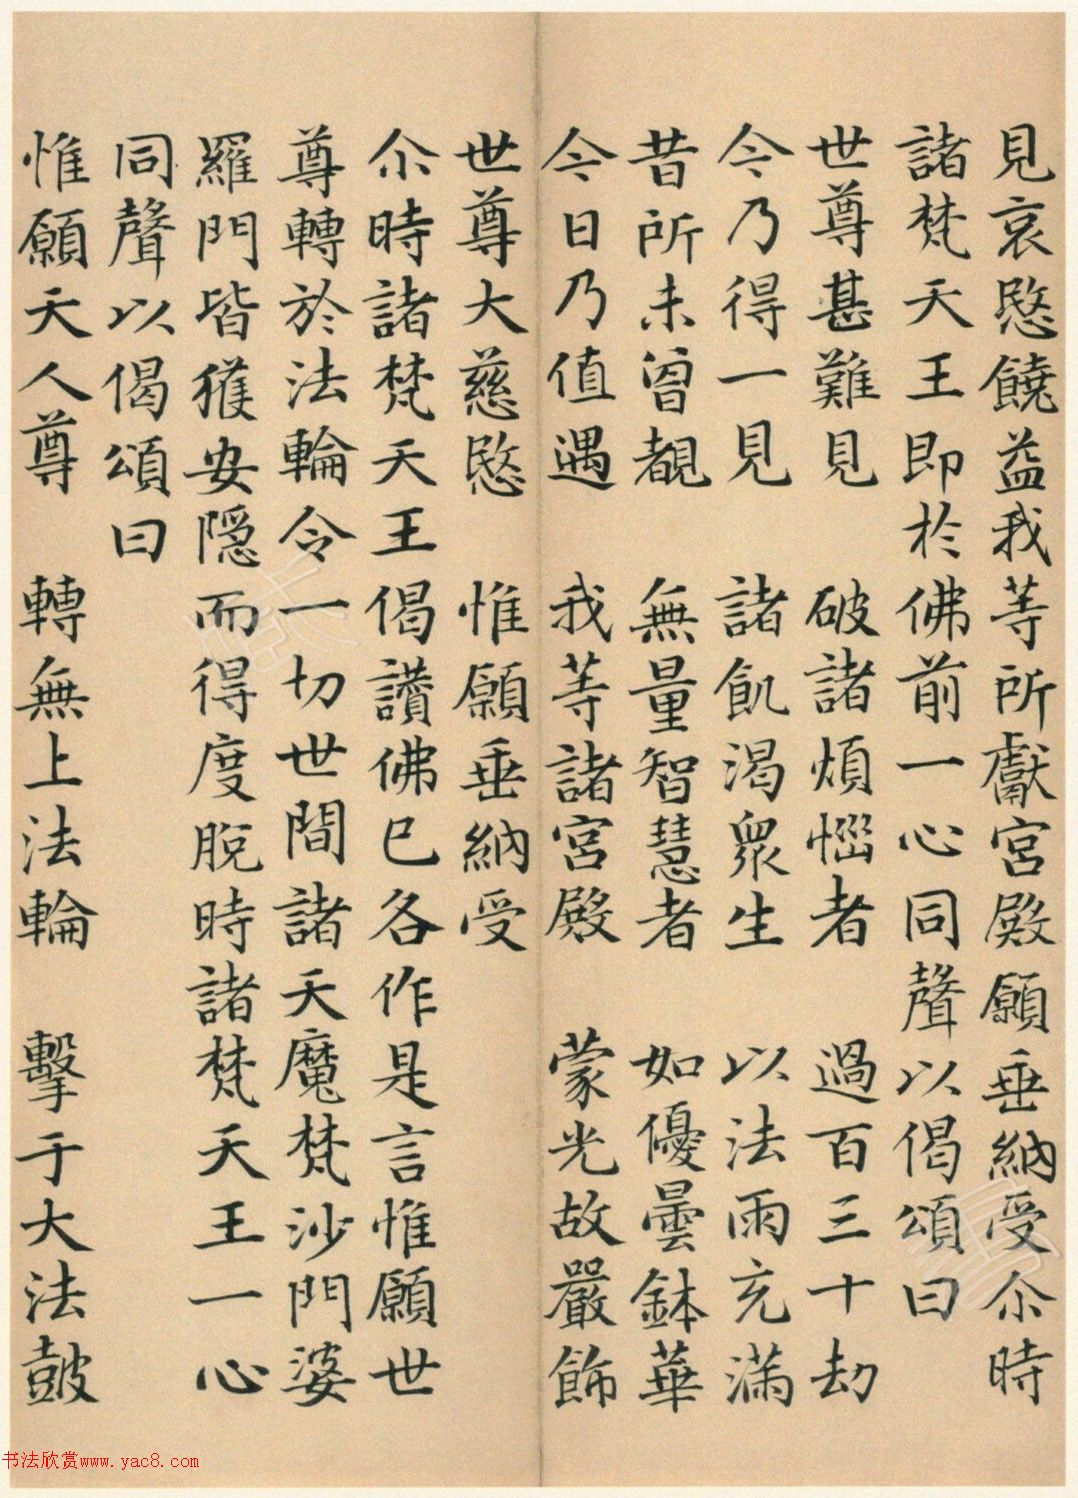 見哀愍饒益我等所獻宮殿願垂納受尒時
諸梵天王即於佛前一心同聲以偈頌曰
世尊甚難見　破諸煩惱者　過百三十劫
今乃得一見　諸飢渴眾生　以法雨充滿
昔所未曾覩　無量智慧者　如優曇鉢華
今日乃值遇　我等諸宮殿　蒙光故嚴飾
世尊大慈愍　惟願垂納受
尒時諸梵天王偈讚佛已各作是言惟願世
尊轉於法輪令一切世間諸天魔梵沙門婆
羅門皆獲安隱而得度脫時諸梵天王一心
同聲以偈頌曰
惟願天人尊　轉無上法輪　擊于大法鼓
书法欣赏www.yac8.com